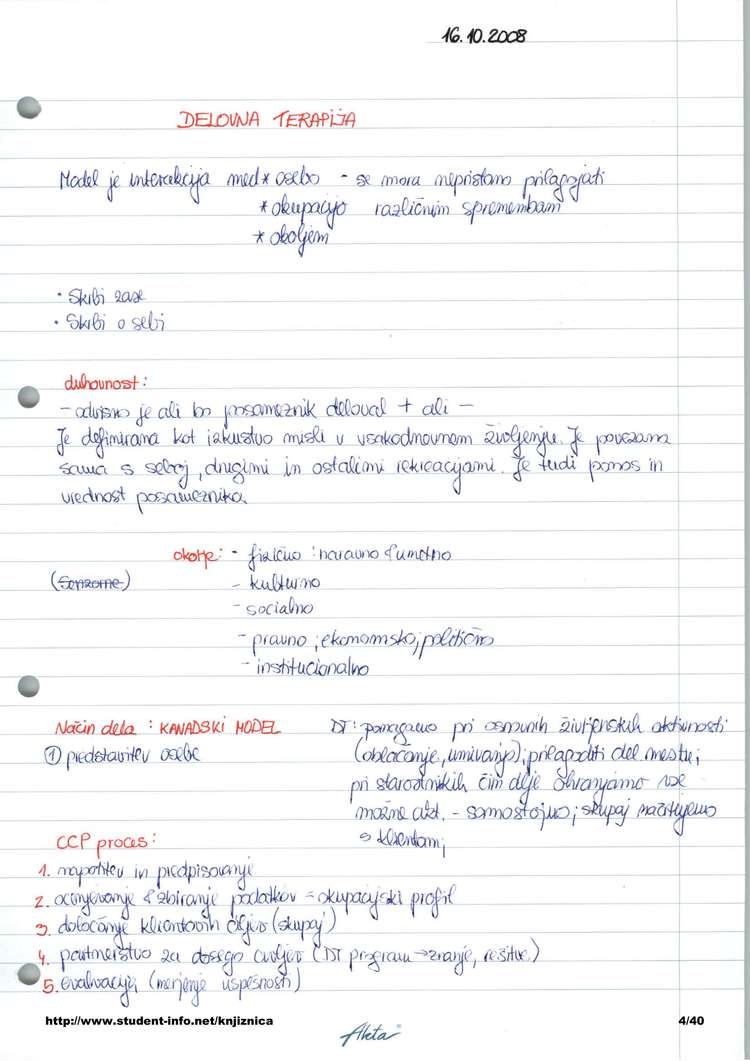 16.10.2008
DELOVNA TERAPIJA
Model je interakcija med * osebo - se mora nepristano prilagajati
* okupacijo različnim spremembam
* okoljem
• Skrbi zase
• Skrbi o sebi
duhovnost:
- odvisno je ali bo posameznik deloval + ali -
Je definirana kot izkustvo misli v vsakodnevnem življenju. Je povezana
sama s seboj, drugimi in ostalimi rekreacijami. Je tudi ponos in
vrednost posameznika.
okolje: - fizično: naravno & umetno
(Senzorne) - kulturno
- socialno
- pravno; ekonomsko; politično
- institucionalno
Način dela: KANADSKI MODEL DT: pomagamo pri osnovnih življenskih aktivnosti
① predstavitev osebe (oblačanje, umivanje); prilagoditi del. mestu;
pri starostnikih čim dlje ohranjamo vse
možne akt. - samostojno; skupaj načrtujemo
s klientom;
CCP proces:
1. napotitev in predpisovanje
2. ocenjevanje & zbiranje podatkov = okupacijski profil
3. določanje klientovih ciljev (skupaj)
4. partnerstvo za dosego ciljev (DT program → znanje, rešitve)
5. evalvacija (merjenje uspešnosti)
http://www.student-info.net/knjiznica 4/40
Akta